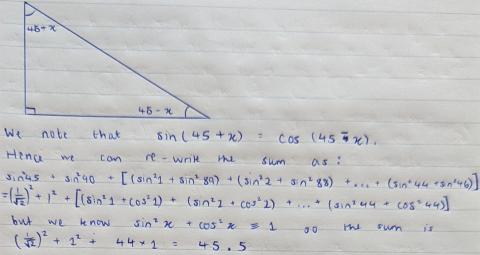 45+x
45-x
We note that sin(45+x) = cos(45-x).
Hence we can re-write the sum as:
sin²45 + sin²90 + [(sin²1 + sin²89) + (sin²2 + sin²88) + ... + (sin²44 + sin²46)]
=(1/√2)² + 1² + [(sin²1 + cos²1) + (sin²2 + cos²2) + ... + (sin²44 + cos²44)]
but we know sin²x + cos²x ≡ 1 so the sum is
(1/√2)² + 1² + 44×1 = 45.5